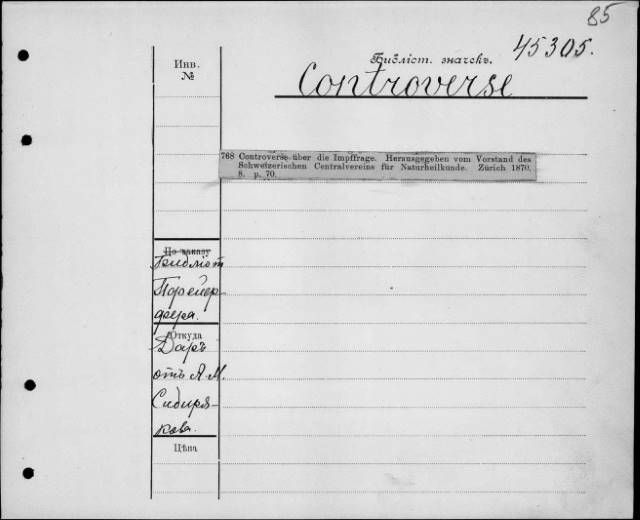 85
Инв.
№
Библіот. значекъ.
45305.
Controverse
768 Controverse über die Impffrage. Herausgegeben vom Vorstand des
Schweizerischen Centralvereins für Naturheilkunde. Zürich 1870.
8. p. 70.
По заказу
Библіот
Порейер-
дера.
Откуда
Даръ
отъ А. М.
Сибиря-
кова.
Цѣна